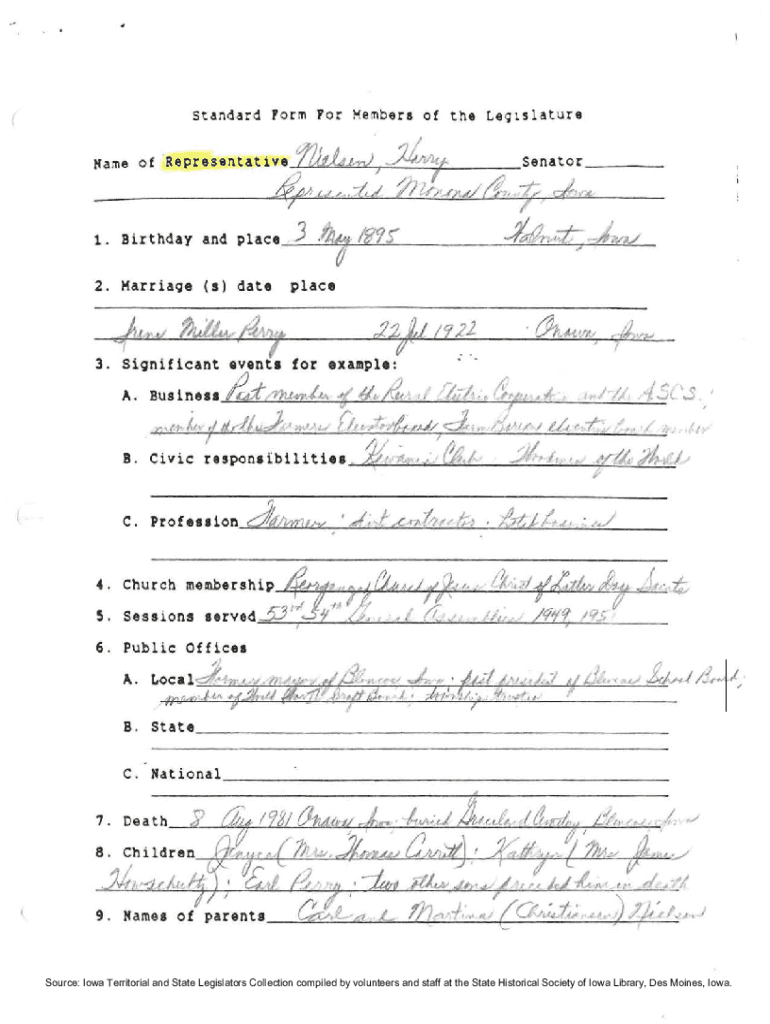 Standard Form For Members of the Legislature
Name of Representative Nielsen, Harry Senator
Represented Monona County, Iowa
1. Birthday and place 3 May 1895 Walnut, Iowa
2. Marriage (s) date place
Irene Miller Perry 22 Jul 1922 Onawa, Iowa
3. Significant events for example:
A. Business Past member of the Rural Electric Cooperative and the ASCS;
member of the Farmers Elevator board, Farm Bureau board member
B. Civic responsibilities Kiwanis Club Woodmen of the World
C. Profession Farmer dirt contractor
4. Church membership Reorganized Church of Jesus Christ of Latter Day Saints
5. Sessions served 53rd, 54th General Assemblies 1949, 195
6. Public Offices
A. Local Former mayor of Blencoe Iowa past president of Blencoe School Board;
member of World War II Draft Board; township trustee
B. State
C. National
7. Death 8 Aug 1981 Onawa Iowa buried Graceland Cemetery, Blencoe, Iowa
8. Children (Mrs. Thomas ); Kathryn (Mrs. James
); Earl Perry; two other sons preceded him in death
9. Names of parents Carl and Martina (Christiansen) Nielsen
Source: Iowa Territorial and State Legislators Collection compiled by volunteers and staff at the State Historical Society of Iowa Library, Des Moines, Iowa.